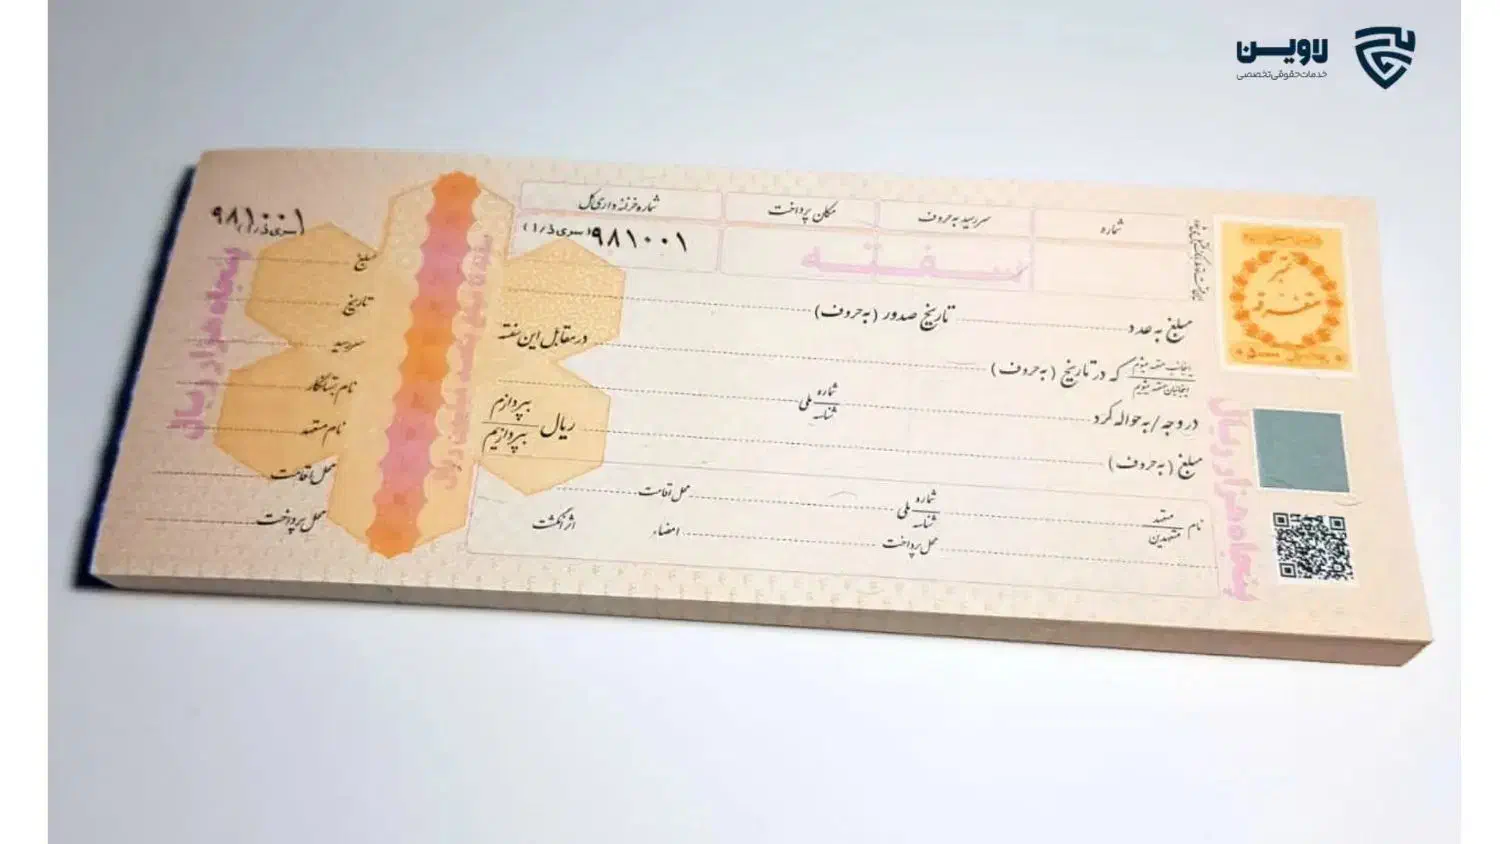 لاوین
خدمات حقوقی تخصصی
شماره
سررسید به حروف
مکان پرداخت
شماره خزانه داری کل
۹۸۱۰۰۱ (سری ذ/۱)
سفته
مبلغ به عدد تاریخ صدور (به حروف)
اینجانب متعهد میشوم
اینجانبان متعهد میشویم
که در تاریخ (به حروف) در مقابل این سفته
در وجه / به حواله کرد شماره ملی شناسه
مبلغ (به حروف) ریال بپردازم بپردازیم
نام متعهد متعهدین شماره ملی شناسه محل اقامت
محل پرداخت امضاء اثر انگشت
۹۸۱۰۰۱
(سری ذ/۱)
مبلغ
تاریخ
سررسید
نام بستانکار
نام متعهد
محل اقامت
محل پرداخت
پنجاه هزار ریال
پنجاه هزار ریال